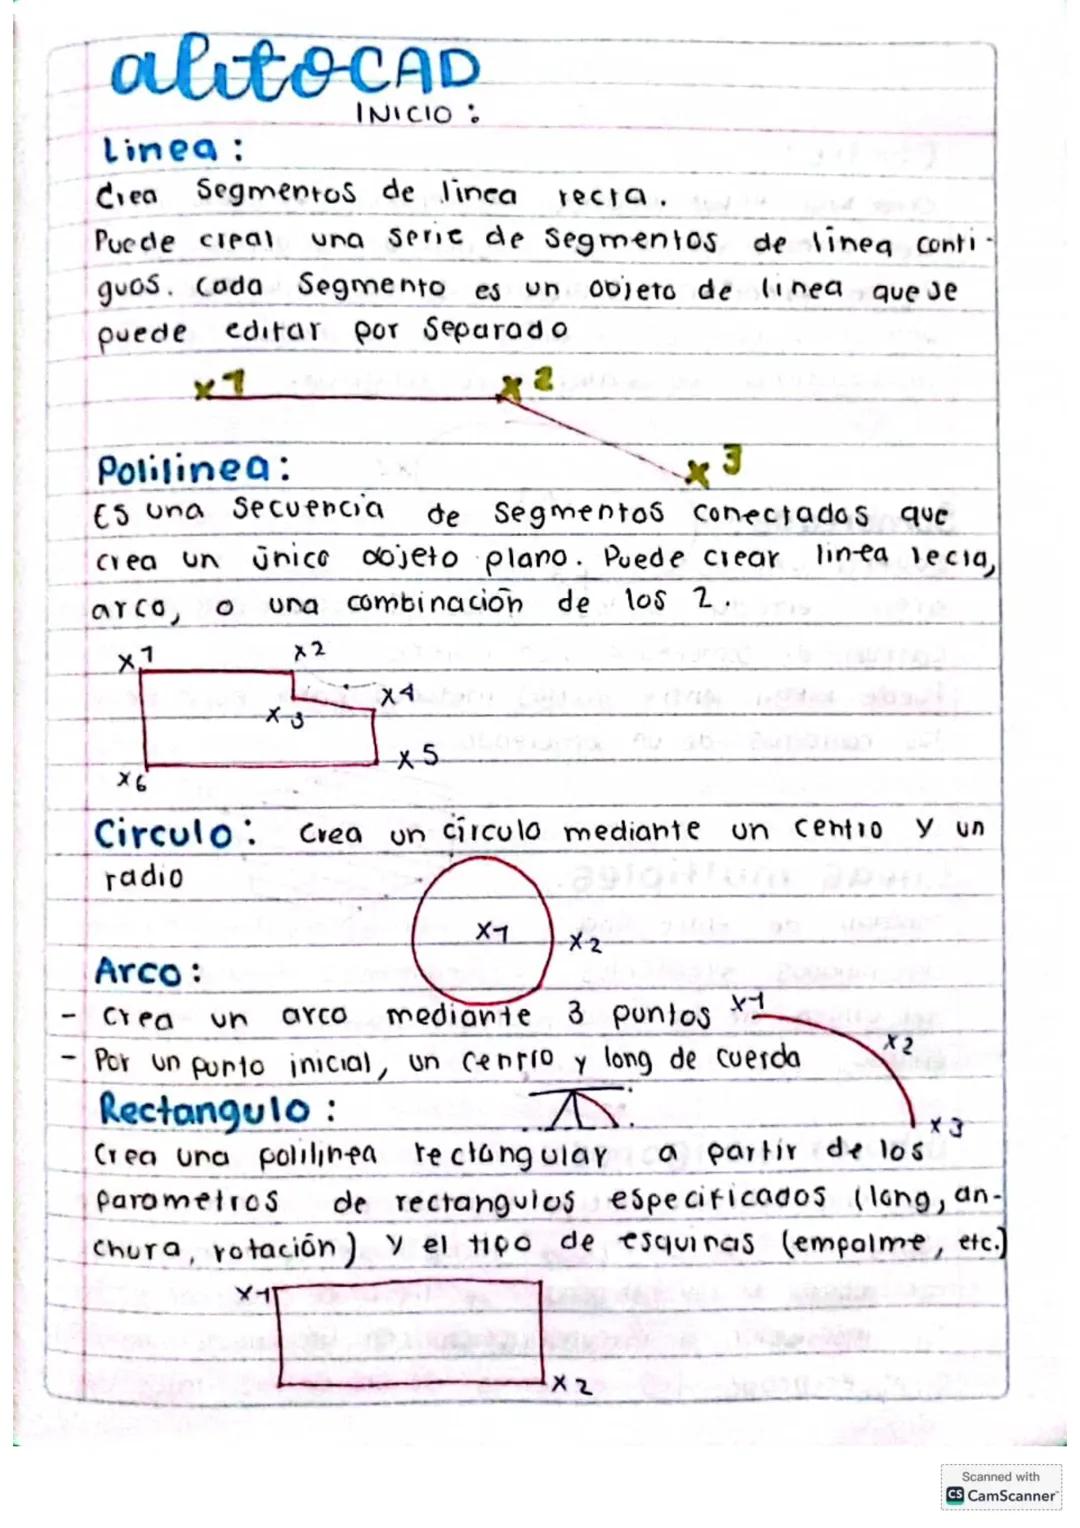 autoCAD
INICIO :
Linea :
Crea Segmentos de linea recta.
Puede crear una serie de segmentos de linea conti-
guos. Cada Segmento es un objeto de linea que se
puede editar por Separado
x1
x2
x3
Polilinea :
Es una Secuencia de Segmentos conectados que
crea un único objeto plano. Puede crear linea recta,
arco, o una combinación de los 2.
x1
x2
x4
x3
x5
x6
Circulo : Crea un círculo mediante un centro y un
radio
x1
x2
Arco :
- Crea un arco mediante 3 puntos
x1
x2
- Por un punto inicial, un Centro y long de cuerda
Rectangulo :
x3
Crea una polilinea rectangular a partir de los
parametros de rectangulos especificados (long, an-
chura, rotación) y el tipo de esquinas (empalme, etc.)
x1
x2
Scanned with
CS CamScanner